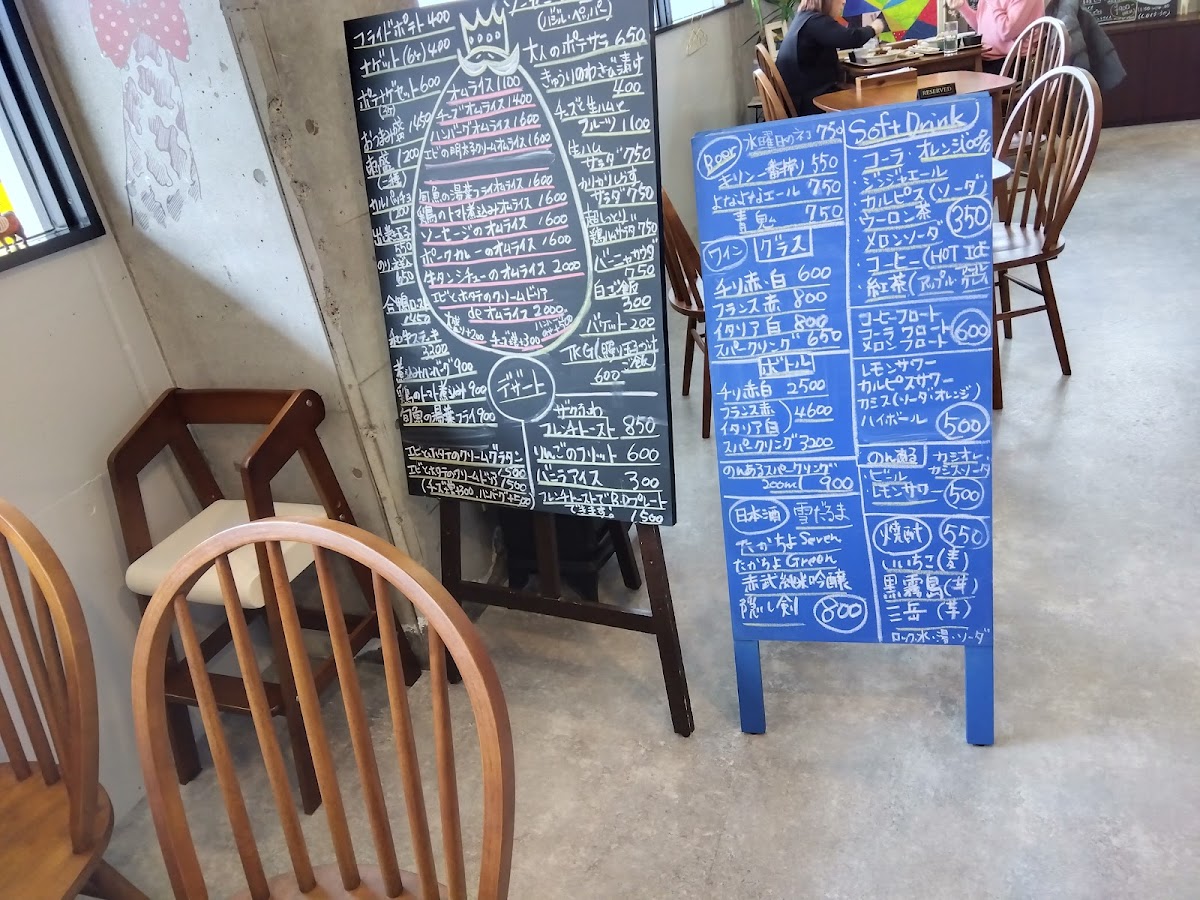 フライドポテト 400
ナゲット(6ヶ) 400
ポテナゲセット 600
おつまみ盛 1450
1200
カルパッチョ
1200
出巻玉子
550
650
合鴨
1450
和牛ステーキ
3200
煮込みハンバーグ 900
鶏のトマト煮込み 900
旬魚の湯葉フライ 900
エビとホタテのクリームグラタン
1500
エビとホタテのクリームドリア 1500
(チーズ+300、ハンバーグ+500)
オムライス 1100
チーズオムライス 1400
ハンバーグオムライス 1600
エビの明太子クリームオムライス 1600
旬魚の湯葉フライオムライス 1600
鶏のトマト煮込みオムライス 1600
ソーセージのオムライス 1600
ポークカレーのオムライス 1600
牛タンシチューのオムライス 2000
エビとホタテのクリームドリア
de オムライス 2000
大盛り+200 チーズ+300 ハンバーグ+500
(バジル・ペッパー)
大人のポテサラ 650
きゅうりのわさび漬け
400
チーズと生ハムと
フルーツ 1100
生ハム
サラダ 750
カリカリじゃこ
サラダ 750
鶏ハムサラダ 750
バーニャカウダ
750
白ご飯
300
バゲット 200
TKG(
600
デザート
フレンチトースト 850
りんごのフリット 600
バニラアイス 300
フレンチトーストでB.Dプレート
できます。 1,500
Beer 水曜日のネコ 750
キリン一番搾り 550
よなよなエール 750
青鬼 750
ワイン グラス
チリ赤・白 600
フランス赤 800
イタリア白 800
スパークリング 650
ボトル
チリ赤白 2500
フランス赤
イタリア白 4600
スパークリング 3200
のんあるスパークリング
200ml 900
日本酒 雪だるま
たかちよ Seven
たかちよ Green
赤武純米吟醸
隠し剣 800
Soft Drink
・コーラ・オレンジ100%
・ジンジャエール
・カルピス(ソーダ)
・ウーロン茶 350
・メロンソーダ
・コーヒー(HOT Ice
・紅茶(アップル・グレイ
コーヒーフロート
コーラフロート 600
メロンフロート
レモンサワー
カルピスサワー
カシス(ソーダ・オレンジ)
ハイボール 500
のんある カシオレ・
カシスソーダ
ビール
レモンサワー 500
焼酎 550
いいちこ(麦)
黒霧島(芋)
三岳(芋)
ロック・水・湯・ソーダ
RESERVED